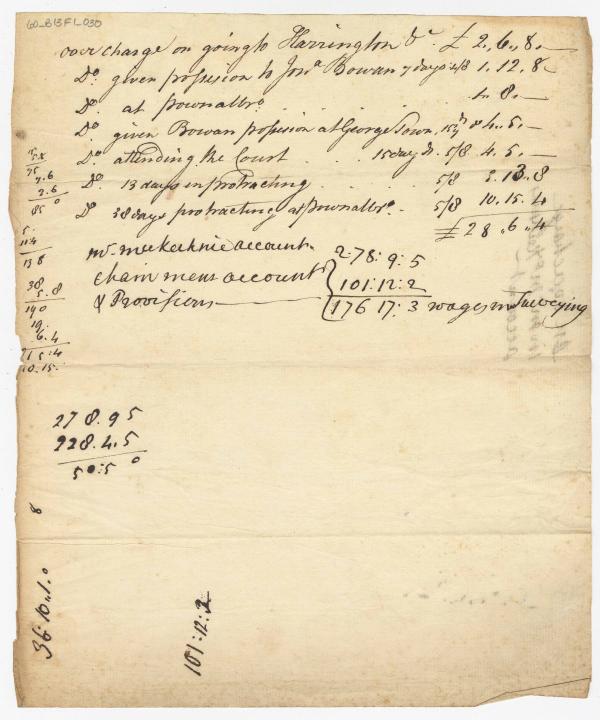 60_B13F1_030
over charge on going to Harrington &c £ 2,,6,,8,—
Do given possesion to Jona Bowan 7 days 4/8 1..12..8
Do at pownallbo . . . . 1..8..—
Do given Bowan possesion at George Town, 15 4..5..—
Do attending the Court . . . 15 days Do 5/8 4..5..—
Do 13 days in protracting . . . 5/8 3.13..8
Do 38 days protracting at pownallbo. 5/8 10..15..4
£ 28,,6,,4
mr mckechnie account
chain mens account
& Provisions
278:9:5
101:12:2
176 17:3 wages in Surveying
75
7.6
2.6
85 0
5.
114
138
38
5.8
190
19.
6.4
215:4
10.15.
278.95
228.4.5
50:5 0
8
36:10..1.0
101:12:2